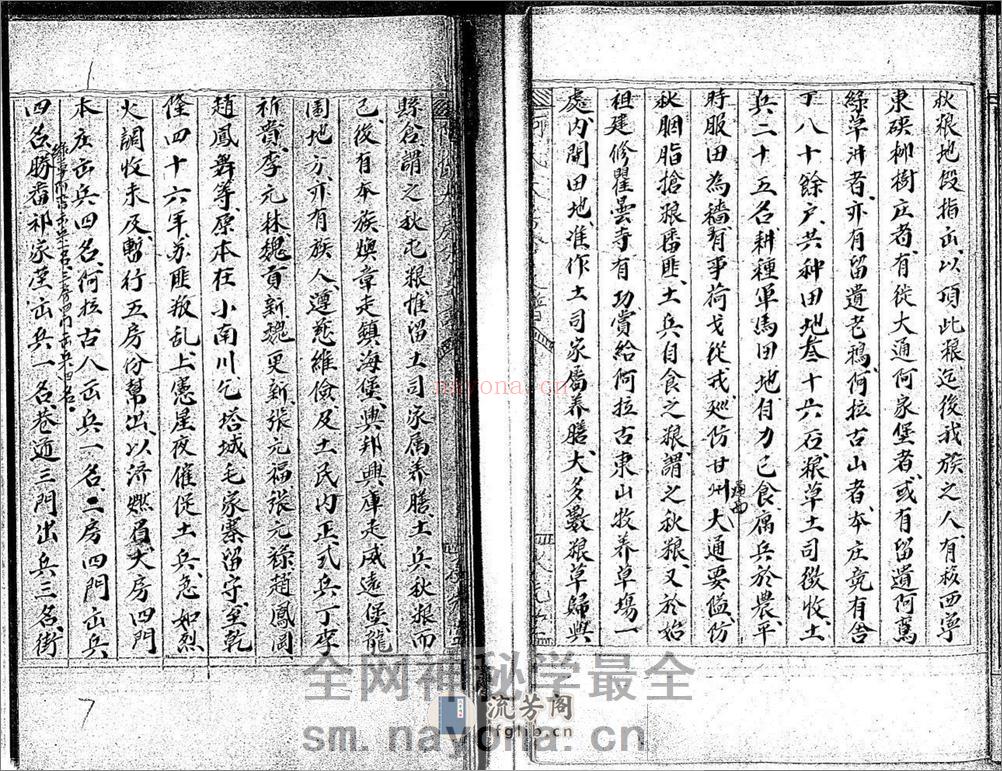 秋粮地段指出以頂此粮迄後我族之人有移西寧
東硤柳樹庄者有從大通何家堡者或有留遺阿鸞
綠草溝者亦有留遺老鴉何拉古山者本庄竟有舍
丁八十餘户共种田地叁十六石粮草土司徵收土
兵二十五名耕種軍馬田地自力己食寓兵於農平
時服田為穡有事荷戈從戎廵仿甘州大通要隘仿
秋胭脂搶粮番匪土兵自食之粮謂之秋粮又於始
祖建修瞿曇寺有功賞給何拉古東山牧养草塲一
處内開田地准作土司家屬养膳大多數粮草歸與
縣倉謂之秋屯粮惟留土司家属养膳土兵秋粮而
己後有本族焕章走鎮海堡興邦興庫走威遠堡龍
圈地方亦有族人遵慈維儉及土民内正式兵丁李
祈貴李元林魏貢新魏更新張元福張元祿趙鳳岡
趙鳳舞等原本在小南川乞塔城毛家寨留守至乾
隆四十六年苏匪叛乱上憲星夜催促土兵急如烈
火調收未及暫行五房份幫出以济燃眉大房四門
本庄出兵四名何拉古人出兵一名二房四門出兵
四名勝畨祁家莹出兵一名巷道三門出兵三名街
全网神秘学最全
流芳阁
lfglib.cn
sm.nayona.cn
nayona.cn